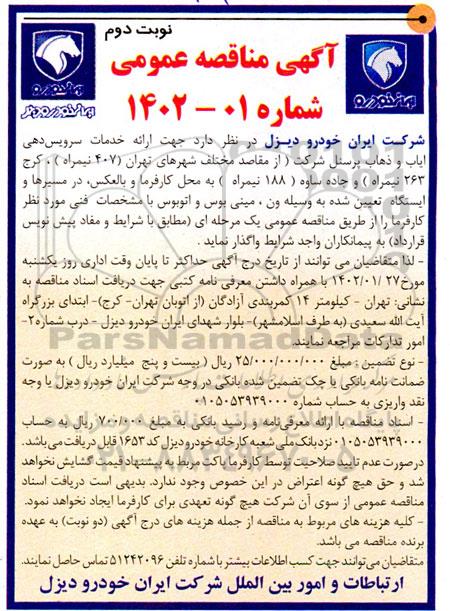 نوبت دوم
آگهی مناقصه عمومی
شماره ۰۱ - ۱۴۰۲
ایران خودرو
ایران خودرو دیزل
ایران خودرو
شرکت ایران خودرو دیـزل در نظر دارد جهت ارائه خدمات سرویس‌دهی
ایاب و ذهاب پرسنل شرکت ( از مقاصد مختلف شهرهای تهران (۴۰۷ نیمراه ) ، کرج
۲۶۳ نیمراه ) و جاده ساوه ( ۱۸۸ نیمراه ) به محل کارفرما و بالعکس، در مسیرها و
ایستگاه تعیین شده به وسیله ون ، مینی بوس و اتوبوس با مشخصات فنی مورد نظر
کارفرما را از طریق مناقصه عمومی یک مرحله ای (مطابق با شرایط و مفاد پیش نویس
قرارداد) به پیمانکاران واجد شرایط واگذار نماید .
- لذا متقاضیان می توانند از تاریخ درج آگهی حداکثر تا پایان وقت اداری روز یکشنبه
مورخ۱۴۰۲/۰۱/۲۷ با همراه داشتن معرفی نامه کتبی جهت دریافت اسناد مناقصه به
نشانی: تهران - کیلومتر ۱۴ کمربندی آزادگان (از اتوبان تهران- کرج)- ابتدای بزرگراه
آیت الله سعیدی (به طرف اسلامشهر)- بلوار شهدای ایران خودرو دیزل - درب شماره۲-
امور تدارکات مراجعه نمایند.
- نوع تضمین : مبلغ ۲۵/۰۰۰/۰۰۰/۰۰۰ ریال ( بیست و پنج میلیارد ریال ) به صورت
ضمانت نامه بانکی یا چک تضمین شده بانکی در وجه شرکت ایران خودرو دیزل یا وجه
نقد واریزی به حساب شماره ۰۱۰۵۰۵۳۹۳۹۰۰۰
- اسناد مناقصه با ارائه معرفی‌نامه و رسید بانکی به مبلغ ۷۰۰/۰۰۰ ریال به حساب
۰۱۰۵۰۵۳۹۳۹۰۰۰ نزد بانک ملی شعبه کارخانه خودرو دیزل کد ۱۶۵۳ قابل دریافت می‌باشد.
درصورت عدم تایید صلاحیت توسط کارفرما پاکت مربوط به پیشنهاد قیمت گشایش نخواهد
شد و حق هیچ گونه اعتراض در این خصوص وجود ندارد. بدیهی است دریافت اسناد
مناقصه عمومی از سوی آن شرکت هیچ گونه تعهدی برای کارفرما ایجاد نخواهد نمود.
- کلیه هزینه های مربوط به مناقصه از جمله هزینه های درج آگهی (دو نوبت) به عهده
برنده مناقصه می باشد.
متقاضیان می‌توانند جهت کسب اطلاعات بیشتر با شماره تلفن ۵۱۲۴۲۰۹۶ تماس حاصل نمایند.
ارتباطات و امور بین الملل شرکت ایران خودرو دیزل